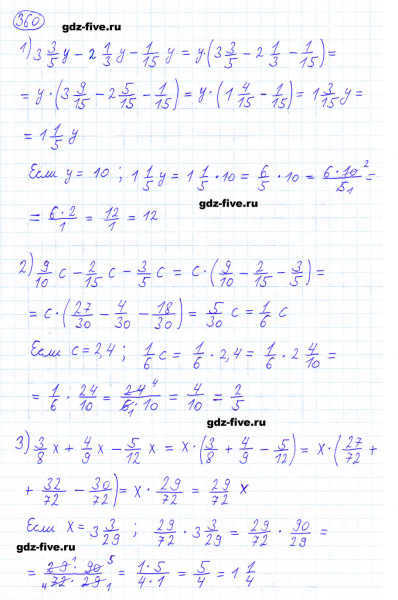 360
gdz-five.ru
1) 3 3/5 y - 2 1/3 y - 1/15 y = y·(3 3/5 - 2 1/3 - 1/15) =
= y·(3 9/15 - 2 5/15 - 1/15) = y·(1 4/15 - 1/15) = 1 3/15 y =
= 1 1/5 y
Если y = 10; 1 1/5 y = 1 1/5 · 10 = 6/5 · 10 = 6·10 2/5 1 =
gdz-five.ru
= 6·2/1 = 12/1 = 12
2) 9/10 c - 2/15 c - 3/5 c = c·(9/10 - 2/15 - 3/5) =
= c·(27/30 - 4/30 - 18/30) = 5/30 c = 1/6 c
Если c = 2,4; 1/6 c = 1/6 · 2,4 = 1/6 · 2 4/10 =
= 1/6 · 24/10 = 24 4/6 1·10 = 4/10 = 2/5
gdz-five.ru
3) 3/8 x + 4/9 x - 5/12 x = x·(3/8 + 4/9 - 5/12) = x·(27/72 +
+ 32/72 - 30/72) = x · 29/72 = 29/72 x
Если x = 3 3/29; 29/72 · 3 3/29 = 29/72 · 90/29 =
gdz-five.ru
= 29 1·90 5/4 72·29 1 = 1·5/4·1 = 5/4 = 1 1/4